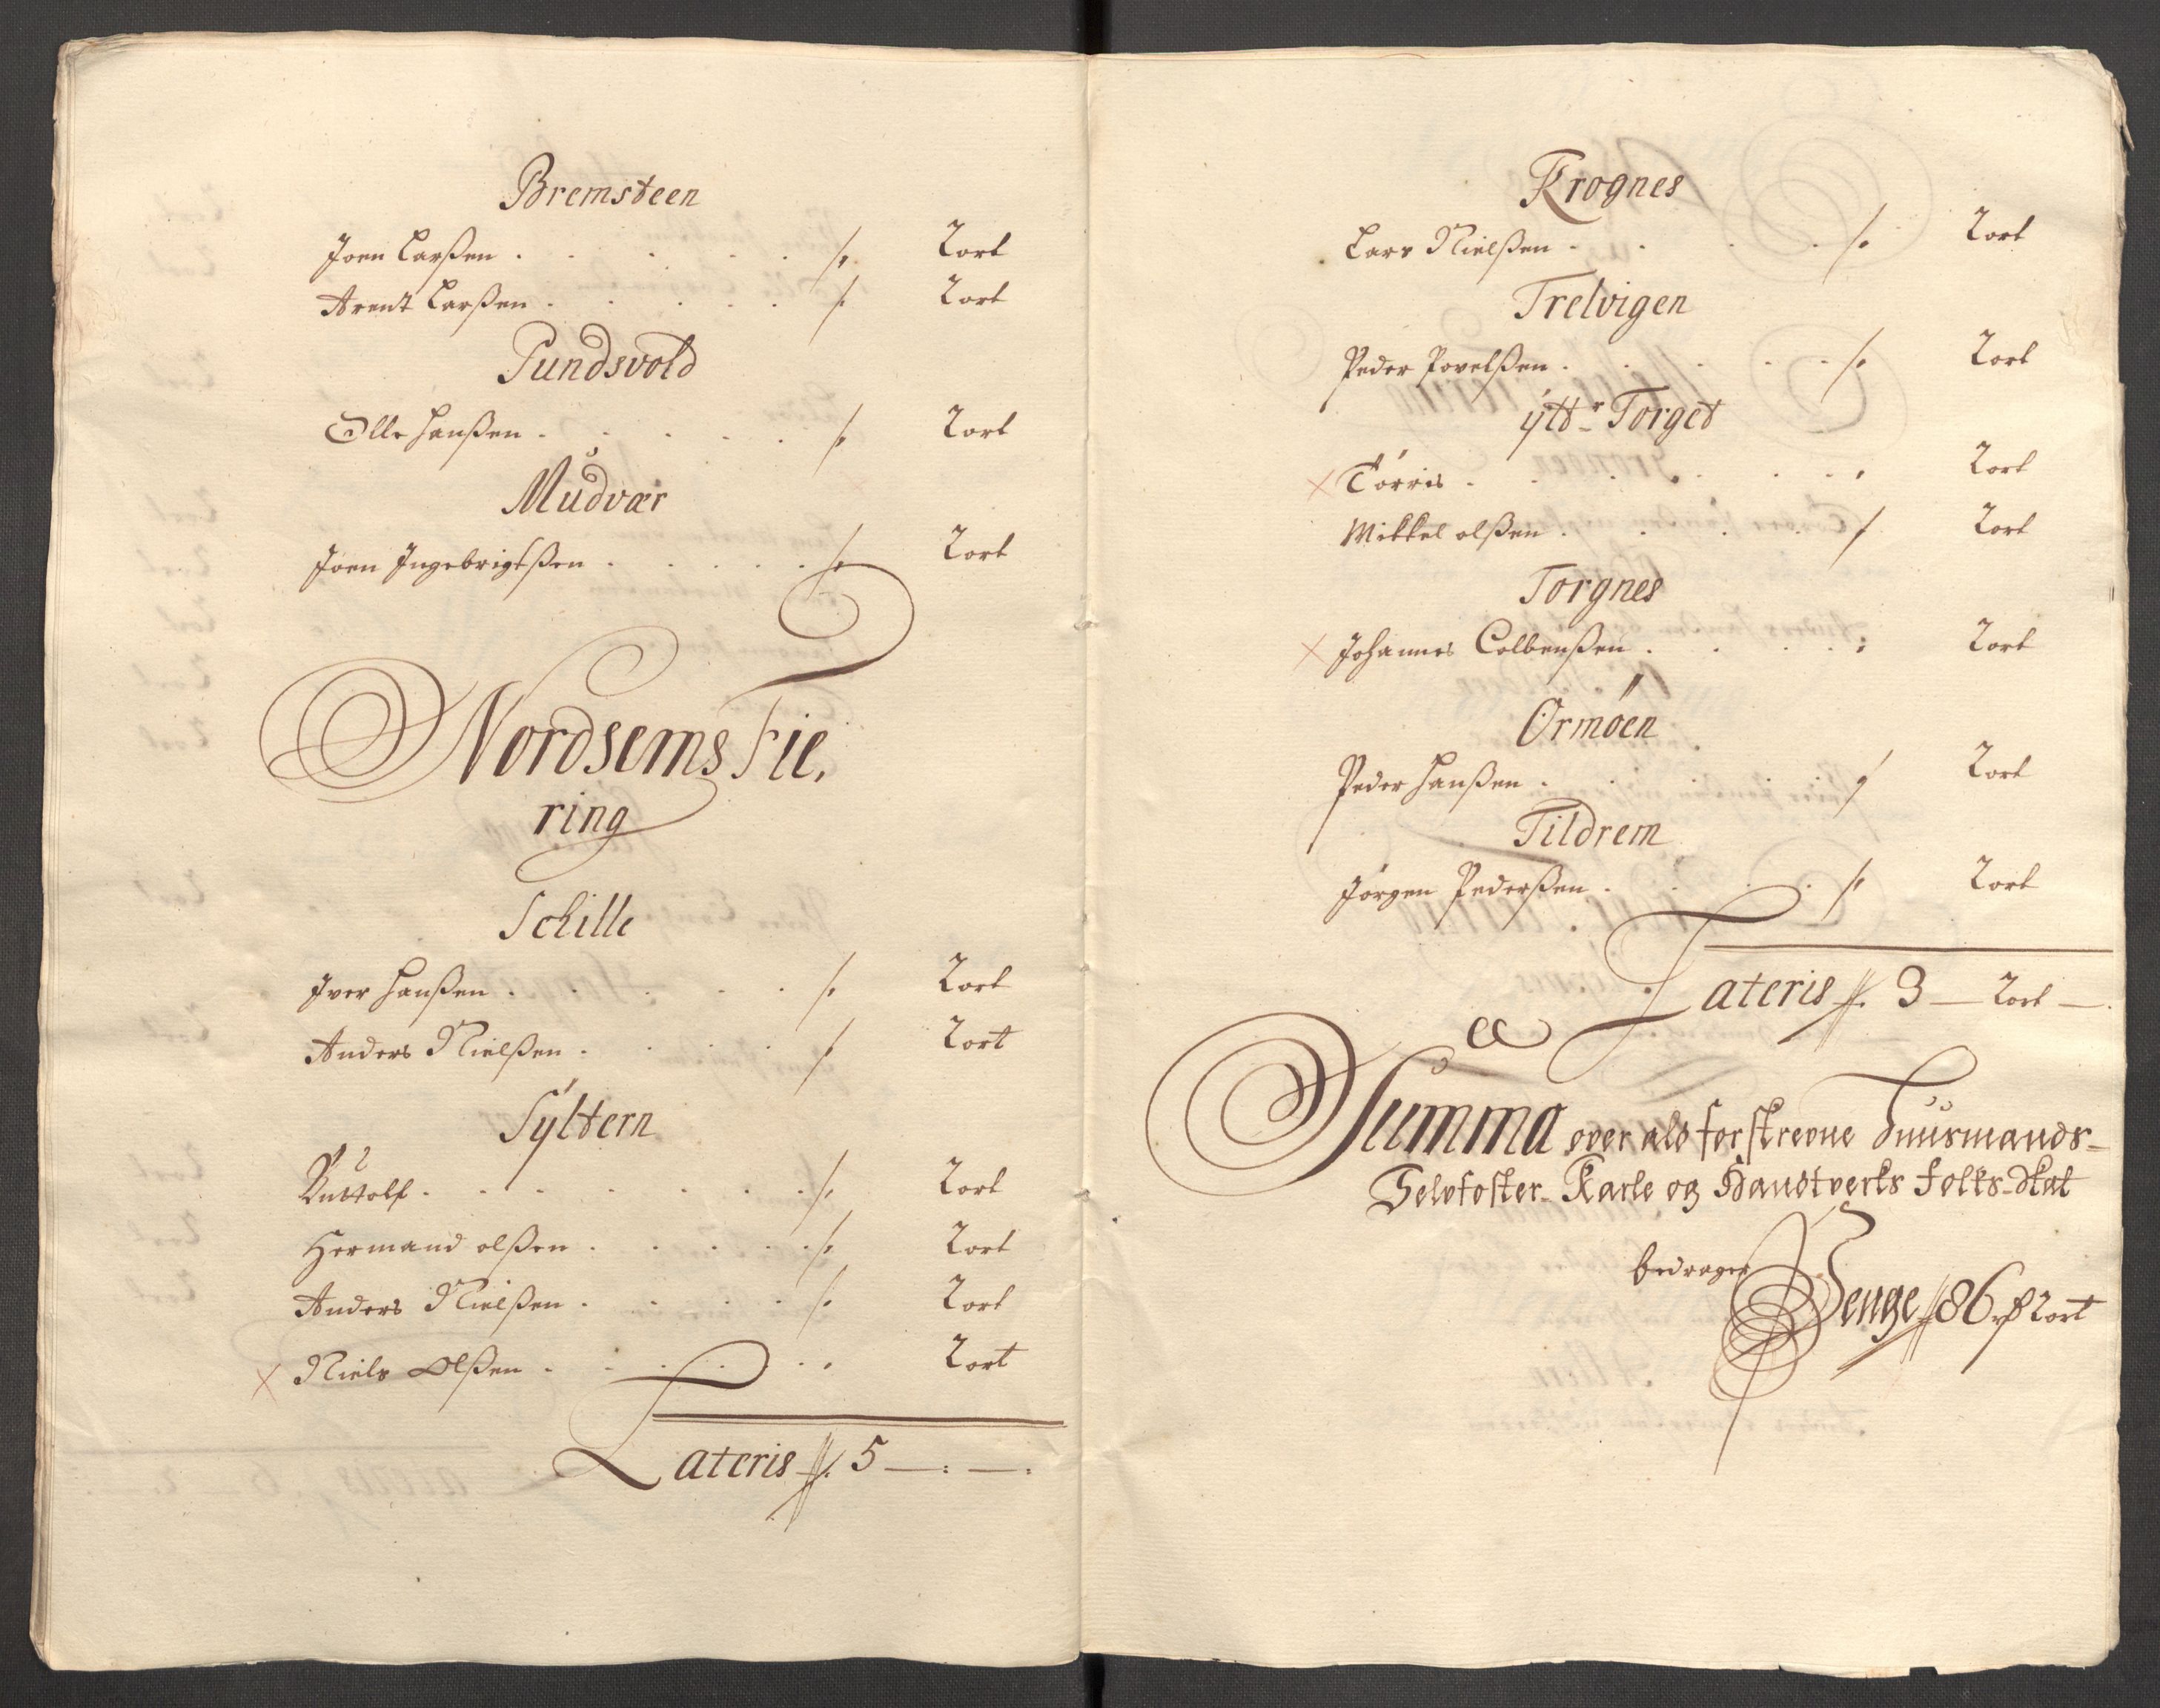 Bremsteen
Joen Larßen . . . . . /. 2 ort
Arent Larßen . . . . . /. 2 ort
Pundsvold
Olle Hanßen . . . . . /. 2 ort
Mudvær
Joen Ingebrigtßen . . . . . /. 2 ort
Nordsems Fie,
ring
Schille
Iver Hanßen . . . . . /. 2 ort
Anders Nielßen . . . . /. 2 ort
Sÿltern
Hermand olßen . . . . . /. 2 ort
Anders Nielßen . . . . . /. 2 ort
x Niels Olßen . . . . . . 2 ort
Lateris 5 — : — :
Krognes
Lars Nielßen . . . . /. 2 ort
Trelvigen
Peder Povelßen . . . . . /. 2 ort
ÿttr Torget
x Tørris . . . . . . . 2 ort
Mikkel olßen . . . . / 2 ort
Torgnes
x Johannes Colbenßen . . . . : 2 ort
Ormøen
Peder Hanßen . . . . / 2 ort
Tildrem
Jørgen Pederßen . . . . /. 2 ort
Lateris 3 — 2 ort —.
Summa over alt forskrevne Huusmands-
Selvfoster-Karle og Handtverks Folks-Skat
bedrager
Penge 86 rd 2 ort